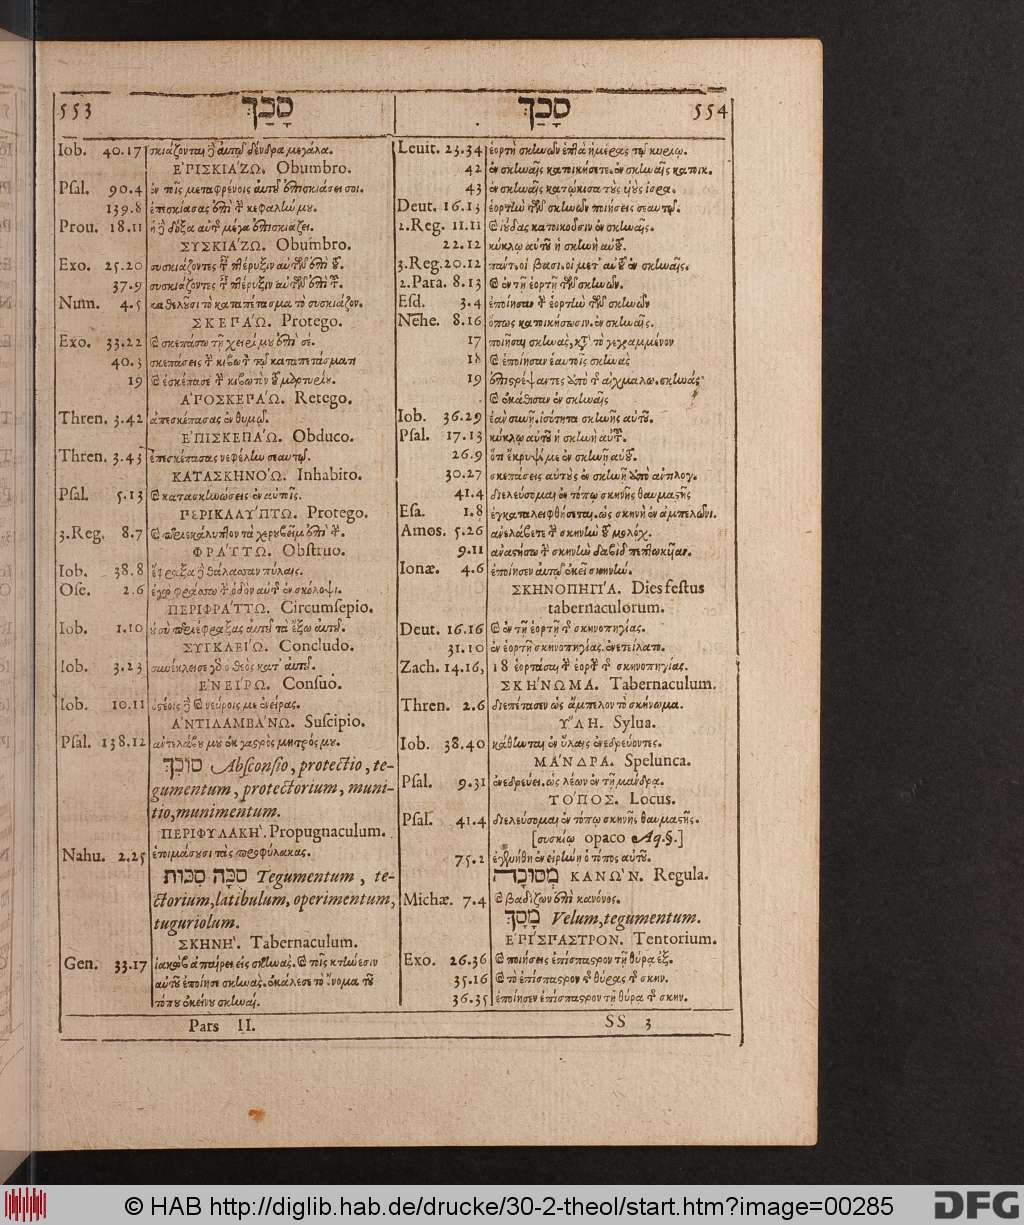 553 סָכַךְ
Iob. 40.17 σκιάζονται ἢ αὐτῷ δένδρα μεγάλα.
ἘΠΙΣΚΙΆΖΩ. Obumbro.
Psal. 90.4 ἐν τοῖς μεταφρένοις αὑτοῦ ἐπισκιάσει σοι.
139.8 ἐπεσκίασας ἐπὶ τὴν κεφαλήν μου.
Prou. 18.11 ἡ ἢ δόξα αὐτῆς μέγα ἐπισκιάζει.
ΣΥΣΚΙΆΖΩ. Obumbro.
Exo. 25.20 συσκιάζοντες ἐν ταῖς πτέρυξιν αὐτῶν ἐπὶ τοῦ.
37.9 συσκιάζοντες ταῖς πτέρυξιν αὐτῶν ἐπὶ τὸ.
Num. 4.5 καθελοῦσι τὸ καταπέτασμα τὸ συσκιάζον.
ΣΚΕΠΆΩ. Protego.
Exo. 33.22 καὶ σκεπάσω τῇ χειρί μου ἐπὶ σέ.
40.3 σκεπάσεις τὴν κιβωτὸν τῷ καταπετάσματι
19 καὶ ἐσκέπασε τὴν κιβωτὸν τοῦ μαρτυρίου.
ἈΠΟΣΚΕΠΆΩ. Retego.
Thren. 3.42 ἀπεσκέπασας ἐν θυμῷ.
ἘΠΙΣΚΕΠΆΩ. Obduco.
Thren. 3.43 ἐπεσκέπασας νεφέλην σεαυτῷ.
ΚΑΤΑΣΚΗΝΌΩ. Inhabito.
Psal. 5.13 καὶ κατασκηνώσεις ἐν αὐτοῖς.
ΠΕΡΙΚΑΛΎΠΤΩ. Protego.
3.Reg. 8.7 καὶ περιεκάλυπτον τὰ χερουβεὶμ ἐπὶ τὴν.
ΦΡΆΤΤΩ. Obstruo.
Iob. 38.8 ἔφραξα ἢ θάλασσαν πύλαις.
Ose. 2.6 ἐγὼ φράσσω τὴν ὁδὸν αὐτῆς ἐν σκόλοψι.
ΠΕΡΙΦΡΆΤΤΩ. Circumsepio.
Iob. 1.10 οὐ σὺ περιέφραξας αὐτοῦ τὰ ἔξω αὐτοῦ.
ΣΥΓΚΛΕΊΩ. Concludo.
Iob. 3.23 συνέκλεισε γὸ ὁ θεὸς κατ᾽ αὐτοῦ.
ἘΝΕΊΡΩ. Consuo.
Iob. 10.11 ὀστέοις ἢ καὶ νεύροις με ἐνείρας.
ἈΝΤΙΛΑΜΒΆΝΩ. Suscipio.
Psal. 138.12 ἀντελάβου μου ἐκ γαστρὸς μητρός μου.
סוֹכֵךְ Absconsio, protectio, te-
gumentum, protectorium, muni-
tio, munimentum.
ΠΕΡΙΦΥΛΑΚΗ'. Propugnaculum.
Nahu. 2.25 ἑτοιμάσουσι τὰς προφύλακας.
סֻכָּה סֻכּוֹת Tegumentum, te-
ctorium, latibulum, operimentum,
tuguriolum.
ΣΚΗΝΗ'. Tabernaculum.
Gen. 33.17 ἰακὼβ ἀπαίρει εἰς σκηνάς. καὶ τοῖς κτήνεσιν
αὐτοῦ ἐποίησε σκηνάς. ἐκάλεσε τὸ ὄνομα τοῦ
τόπου ἐκείνου σκηναί.
Pars II.
סָכַךְ 554
Leuit. 23.34 ἑορτὴ σκηνῶν ἑπτὰ ἡμέρας τῷ κυρίῳ.
42 ἐν σκηναῖς κατοικήσετε. ἐν σκηναῖς κατοικ.
43 ἐν σκηναῖς κατῴκισα τοὺς υἱοὺς ἰσρα.
Deut. 16.13 ἑορτὴν τῶν σκηνῶν ποιήσεις σεαυτῷ.
2.Reg. 11.11 καὶ ἰούδας κατοικοῦσιν ἐν σκηναῖς.
22.12 κύκλῳ αὐτοῦ ἡ σκηνὴ αὐτοῦ.
3.Reg. 20.12 πάντ. οἱ βασι. οἱ μετ᾽ αὐτοῦ ἐν σκηναῖς.
2.Para. 8.13 καὶ ἐν τῇ ἑορτῇ τῶν σκηνῶν.
Esd. 3.4 ἐποίησαν τὴν ἑορτὴν τῶν σκηνῶν
Nehe. 8.16 ὅπως κατοικήσωσιν. ἐν σκηναῖς.
17 ποιῆσαι σκηνὰς, κατὰ τὸ γεγραμμένον
18 καὶ ἐποίησαν ἑαυτοῖς σκηνὰς
19 ἐπιστρέψαντες ἀπὸ τῆς αἰχμαλω. σκηνάς
καὶ ἐκάθισαν ἐν σκηναῖς
Iob. 36.29 ἐὰν συνῇ. ἰσότητα σκηνῆς αὐτοῦ.
Psal. 17.13 κύκλῳ αὐτοῦ ἡ σκηνὴ αὐτοῦ.
26.9 ὅτι ἔκρυψέ με ἐν σκηνῇ αὐτοῦ.
30.27 σκεπάσεις αὐτοὺς ἐν σκηνῇ ἀπὸ ἀντιλογ.
41.4 διελεύσομαι ἐν τόπῳ σκηνῆς θαυμαστῆς
Esa. 1.8 ἐγκαταλειφθήσεται. ὡς σκηνὴ ἐν ἀμπελῶνι.
Amos. 5.26 ἀνελάβετε τὴν σκηνὴν τοῦ μολόχ.
9.11 ἀναστήσω τὴν σκηνὴν δαβὶδ πεπτωκυῖαν.
Ionæ. 4.6 ἐποίησεν αὐτῷ ἐκεῖ σκηνήν.
ΣΚΗΝΟΠΗΓΊΑ. Dies festus
tabernaculorum.
Deut. 16.16 καὶ ἐν τῇ ἑορτῇ τῆς σκηνοπηγίας.
31.10 ἐν ἑορτῇ σκηνοπηγίας. ἐνετείλατο.
Zach. 14.16, 18 ἑορτάσαι τὴν ἑορτὴν τῆς σκηνοπηγίας.
ΣΚΉΝΩΜΑ. Tabernaculum.
Thren. 2.6 διεπέτασεν ὡς ἄμπελον τὸ σκήνωμα.
ὝΛΗ. Sylua.
Iob. 38.40 κάθηνται ἐν ὕλαις ἐνεδρεύοντες.
ΜΆΝΔΡΑ. Spelunca.
Psal. 9.31 ἐνεδρεύει. ὡς λέων ἐν τῇ μάνδρᾳ.
ΤΌΠΟΣ. Locus.
Psal. 41.4 διελεύσομαι ἐν τόπῳ σκηνῆς θαυμαστῆς.
[συσκίῳ opaco Aq.§.]
75.2 ἐγενήθη ἐν εἰρήνῃ ὁ τόπος αὐτοῦ.
מְסוּכָה ΚΑΝΩ'Ν. Regula.
Michæ. 7.4 καὶ βαδίζων ἐπὶ κανόνος.
מָסָךְ Velum, tegumentum.
ἘΠΊΣΠΑΣΤΡΟΝ. Tentorium.
Exo. 26.36 καὶ ποιήσεις ἐπίσπαστρον τῇ θύρᾳ ἐξ.
35.16 καὶ τὸ ἐπίσπαστρον τῆς θύρας τῆς σκην.
36.35 ἐποίησεν ἐπίσπαστρον τῇ θύρᾳ τῆς σκην.
SS 3
© HAB http://diglib.hab.de/drucke/30-2-theol/start.htm?image=00285
DFG